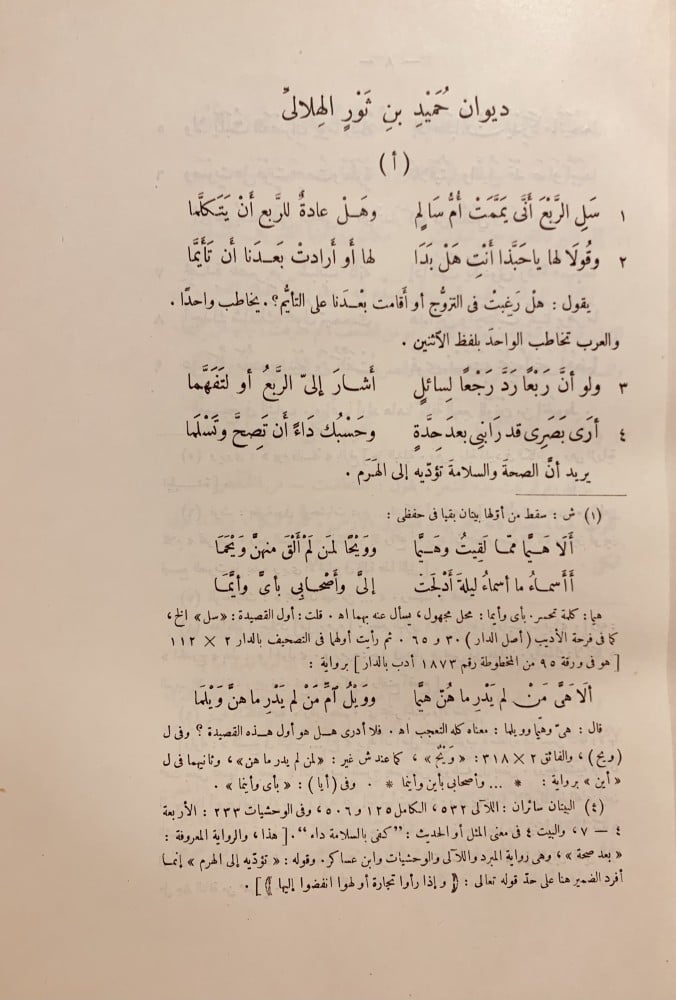 ديوان حُمَيْدِ بنِ ثَوْرٍ الهِلالىِّ
(أ)
١ سَلِ الرَّبْعَ أَنَّى يَمَّمَتْ أُمُّ سَالِمٍ وهَلْ عادةٌ للرَّبع أَنْ يَتَكلَّما
٢ وقُولَا لها ياحَبَّذا أَنْتِ هَلْ بَدَا لها أَو أَرادتْ بَعـدَنا أَن تَأَيَّما
يقول : هلْ رَغِبتْ فى التزوُّج أو أقامت بعْدَنا على التأيُّم؟ . يخاطب واحدًا .
والعرب تخاطب الواحدَ بلفظ الآثنين .
٣ ولو أنَّ رَبْعًا رَدَّ رَجْعًا لِسائلٍ أَشارَ إلىّ الرَّبعُ أو لتَفَهَّما
٤ أَرَى بَصَرِى قد رَابَنِى بعدَ حِدَّةٍ وحَسْبُك دَاءً أَن تَصِحَّ وتَسْلَما
يريد أنَّ الصحة والسلامة تؤدّيه إلى الهَرَم .
(١) ش : سقط من أوّلها بيتان بقيا فى حفظى :
أَلَا هَيَّمَا ممّا لَقِيتُ وهَيَّما وويْحًا لمَن لَمْ أَلْقَ منهنَّ وَيْحَمَا
أَأَسماءُ ما أسماءُ ليلةَ أَدْلَجَتْ إلىَّ وأَصْحابِى بأَىَّ وأَيَّمَا
هيما : كلمة تحسر. بأى وأيما : محل مجهول، يسأل عنه بهما اه . قلت : أول القصيدة : «سل» الخ،
كما فى فرحة الأديب (أصل الدار) ٣٠ و ٦٥ . ثم رأيت أولهما فى التصحيف بالدار ٢ × ١١٢
[هو فى ورقة ٩٥ من المخطوطة رقم ١٨٧٣ أدب بالدار] برواية :
ألَا هَىَّ مَنْ لم يَدْرِ ما هُنّ هيَّما وويْلُ آمِّ مَنْ لم يَدْرِ ما هنَّ وَيْلَما
قال : هىّ وهيّما وويلما : معناه كله التعجب اه . فلا أدرى هـل هو أول هـذه القصيدة ؟ وفى ل
(ويح) ، والفائق ٢ × ٣١٨ : «وَيْحٌ» ، كما عند ش غير : «لمن لم يدر ما هن»، وثانيهما فى ل
«أين» برواية : * ... وأصحابى بأين وأينما * . وفى (أيا) : «بأى وأينما» .
(٤) البيتان سائران : اللآلى ٥٣٢، الكامل ١٢٥ و ٥٠٦، وفى الوحشيات ٢٣٣ : الأربعة
٤ — ٧، والبيت ٤ فى معنى المثل أو الحديث : "كفى بالسلامة داء". [هذا، والرواية المعروفة :
«بعد صحة»، وهى رواية المبرد واللآلى والوحشيات وابن عساكر. وقوله : «تؤدّيه إلى الهرم» إنمـا
أفرد الضمير هنا على حدّ قوله تعالى : ﴿وإذا رأوا تجارة أو لهوا انفضوا إليها﴾] .